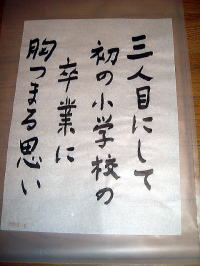 三人目にして
初の小学校の
卒業に
胸つまる思い